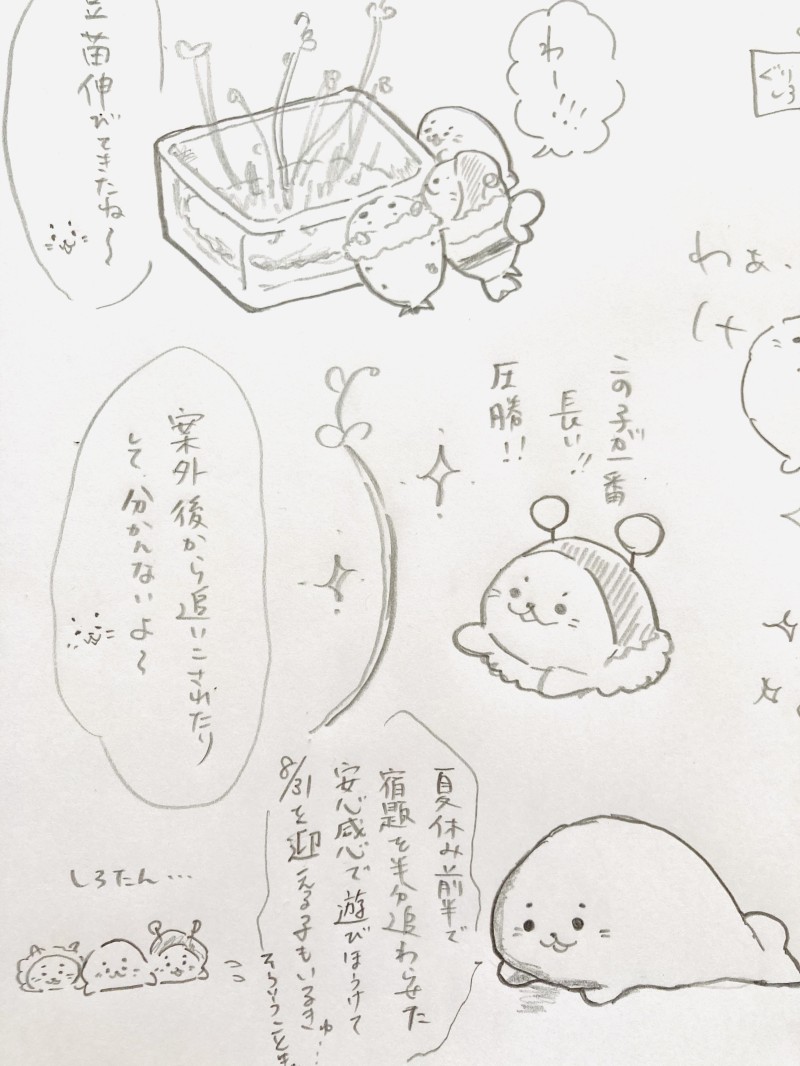 豆苗伸びてきたね〜
わー!!!
ぐり
しろ
わぁ、
この子が一番
長い!!
圧勝!!
案外後から追いこされたり
して、分かんないよ〜
夏休み前半で
宿題を半分追わらせた
安心感で遊びほうけて
8/31を迎える子もいるき
ゅ…
そういうことも
しろたん…